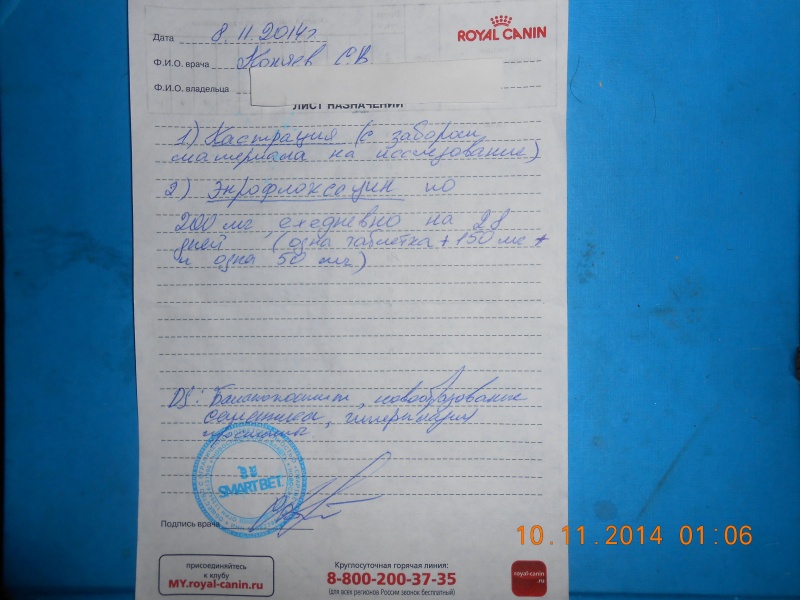 Дата 8.11.2014г
ROYAL CANIN
Ф.И.О. врача Коняев С.В.
Ф.И.О. владельца
ЛИСТ НАЗНАЧЕНИЙ
1) Кастрация (с забором
материала на исследование)
2) Энрофлоксацин по
200 мг, ежедневно на 28
дней (одна таблетка + 150 мг +
и одна 50 мг.)
DS: Баланопостит, новообразование
семенника, гиперплазия
простаты.
SMARTBET
Подпись врача
10.11.2014 01:06
присоединяйтесь
к клубу
MY.royal-canin.ru
Круглосуточная горячая линия:
8-800-200-37-35
(для всех регионов России звонок бесплатный)
royal-canin
.ru